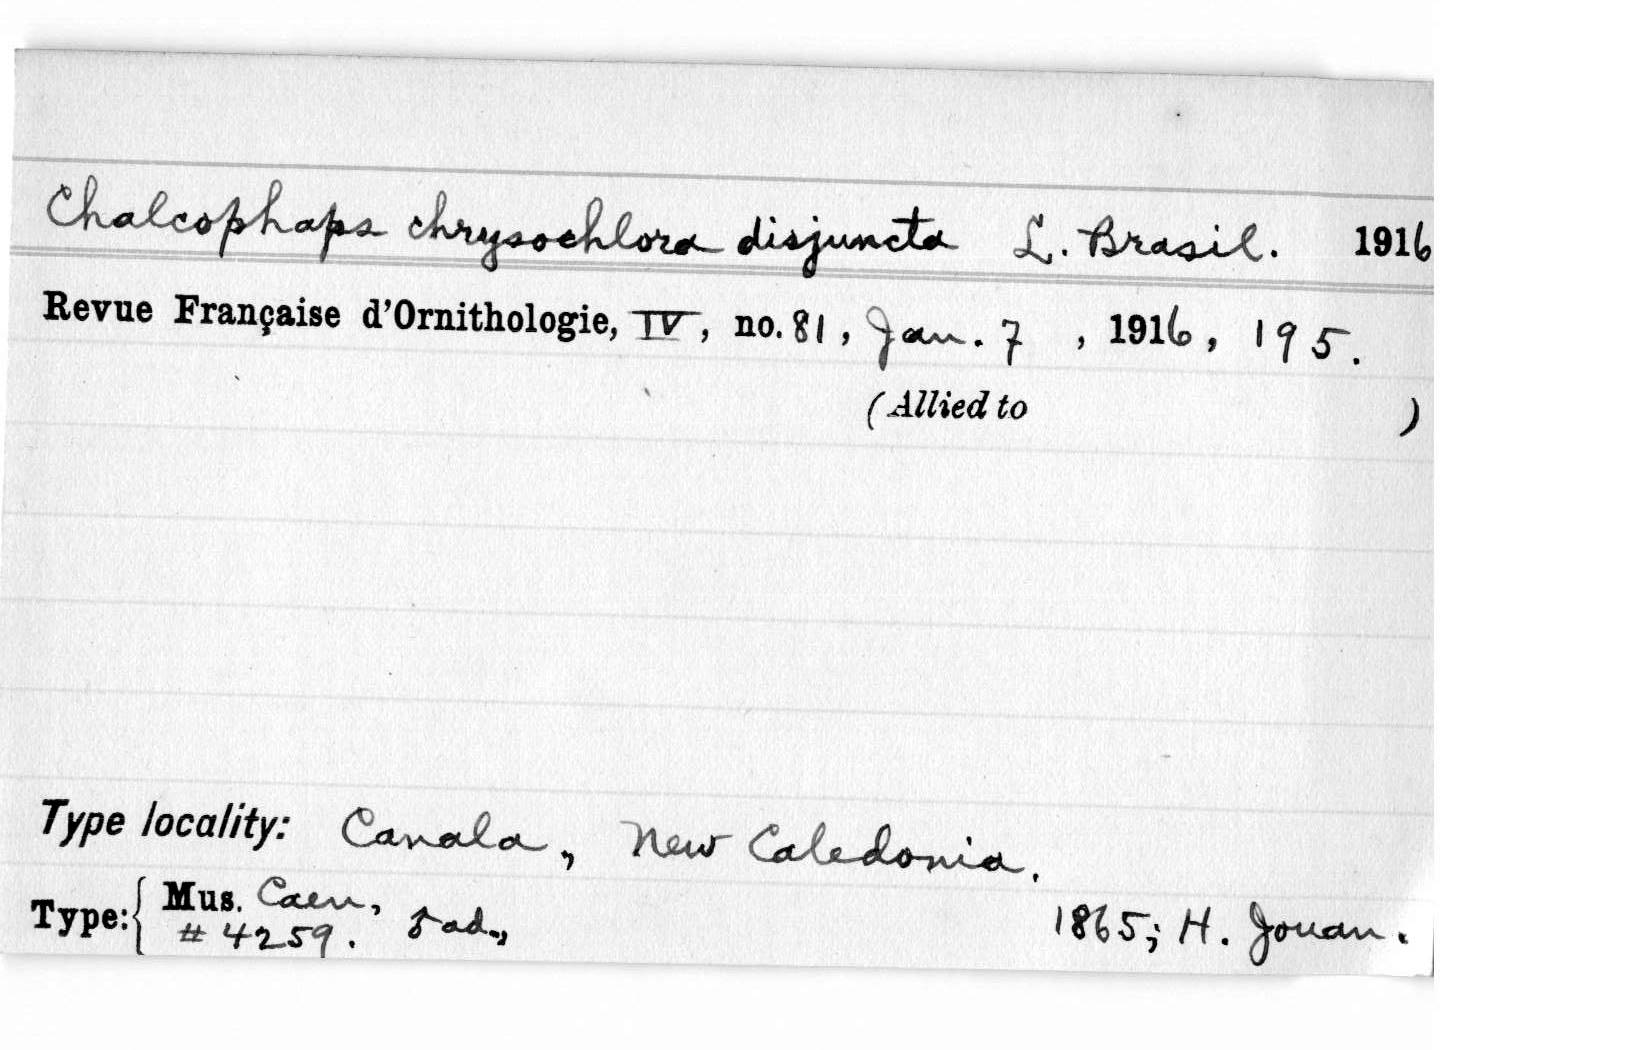 Chalcophaps chrysochlora disjuncta L. Brasil. 1916
Revue Française d'Ornithologie, IV, no. 81, Jan. 7, 1916, 195.
(Allied to )
Type locality: Canala, New Caledonia.
Type: { Mus. Caen,
# 4259. ad., 1865; H. Jouan.